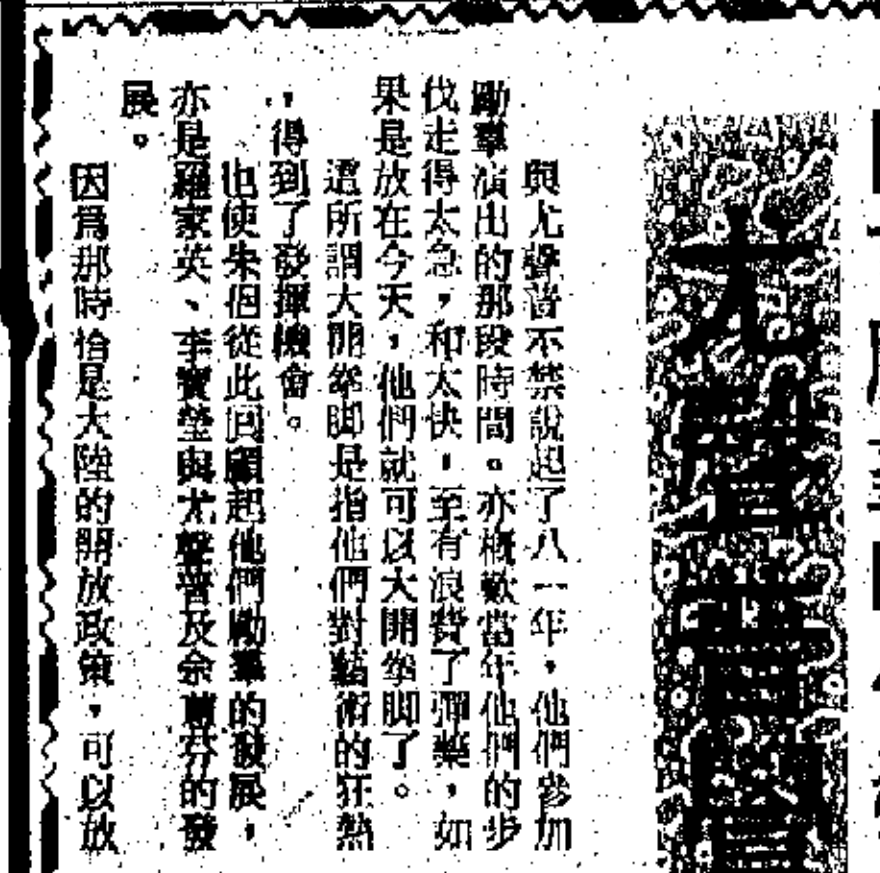 尤聲普
與尤聲普不禁說起了八一年，他們參加
勵羣演出的那段時間。亦概歎當年他們的步
伐走得太急，和太快，至有浪費了彈藥，如
果是放在今天，他們就可以大開拳脚了。
這所謂大開拳脚是指他們對藝術的狂熱
，得到了發揮機會。
也使朱個從此回顧起他們勵羣的發展，
亦是羅家英、李寶瑩與尤聲普及余蕙芬的發
展。
因爲那時恰是大陸的開放政策，可以放